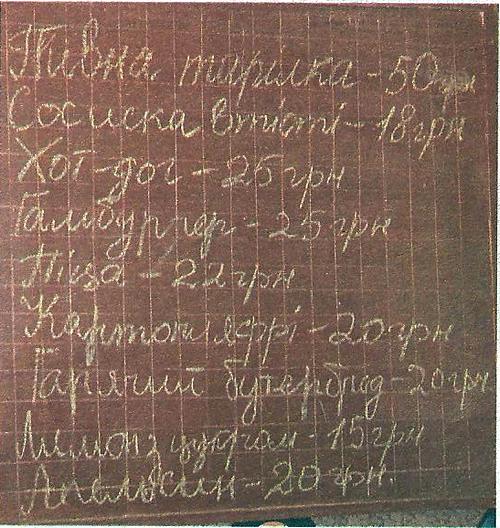 Пивна тарілка - 50грн
Сосиска в тісті - 18грн
Хот-дог - 25грн
Гамбургер - 25грн
Піца - 22грн
Картопля фрі - 20грн
Гарячий бутерброд - 20грн
Лимон з цукром - 15грн
Апельсин - 20грн.